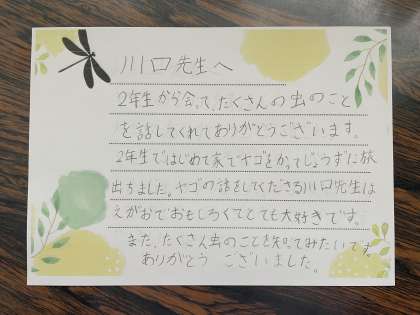 川口先生へ
2年生から会って、たくさんの虫のこと
を話してくれてありがとうございます。
2年生ではじめて家でヤゴをかってじょうずに旅
出ちました。ヤゴの話をしてくださる川口先生は
えがおでおもしろくてとても大好きです。
また、たくさん虫のことを知ってみたいです。
ありがとうございました。